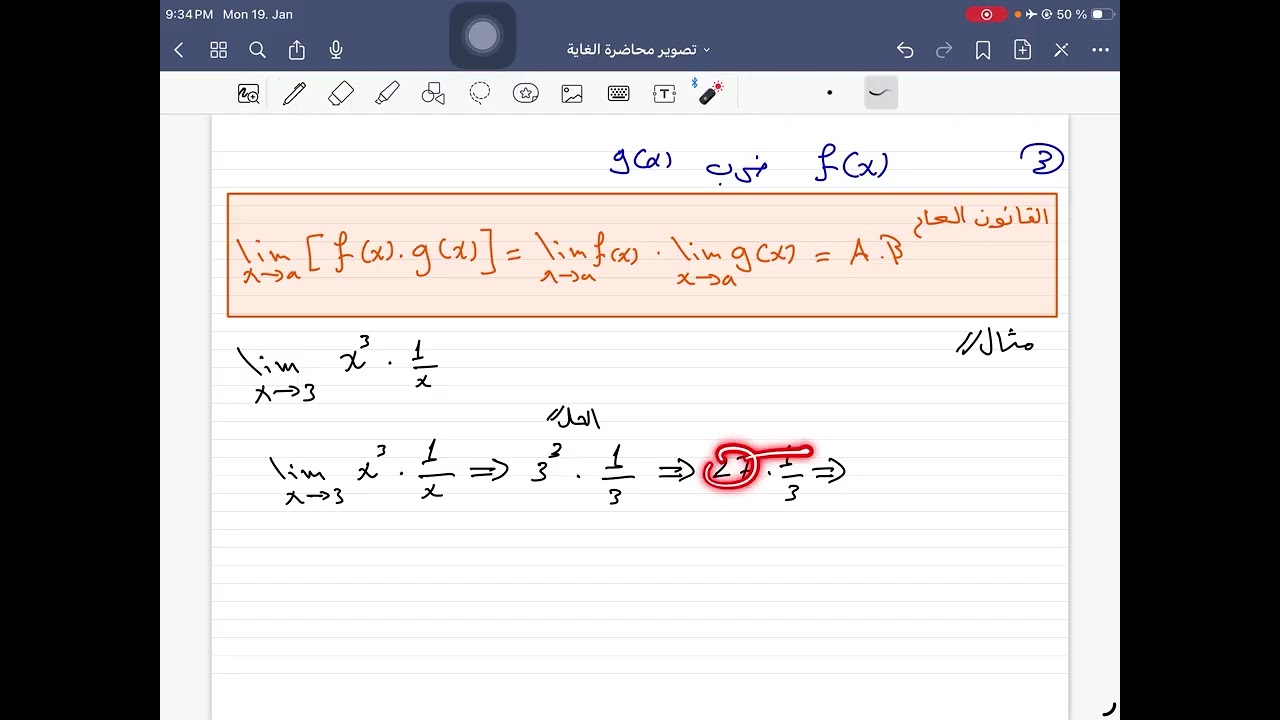 9:34 PM Mon 19. Jan 50 %
تصوير محاضرة الغاية
T
③ f(x) ضرب g(x)
القانون العام
lim x→a [f(x) . g(x)] = lim x→a f(x) . lim x→a g(x) = A . B
مثال //
lim x→3 x³ . 1/x
الحل //
lim x→3 x³ . 1/x ⇒ 3³ . 1/3 ⇒ 27 . 1/3 ⇒